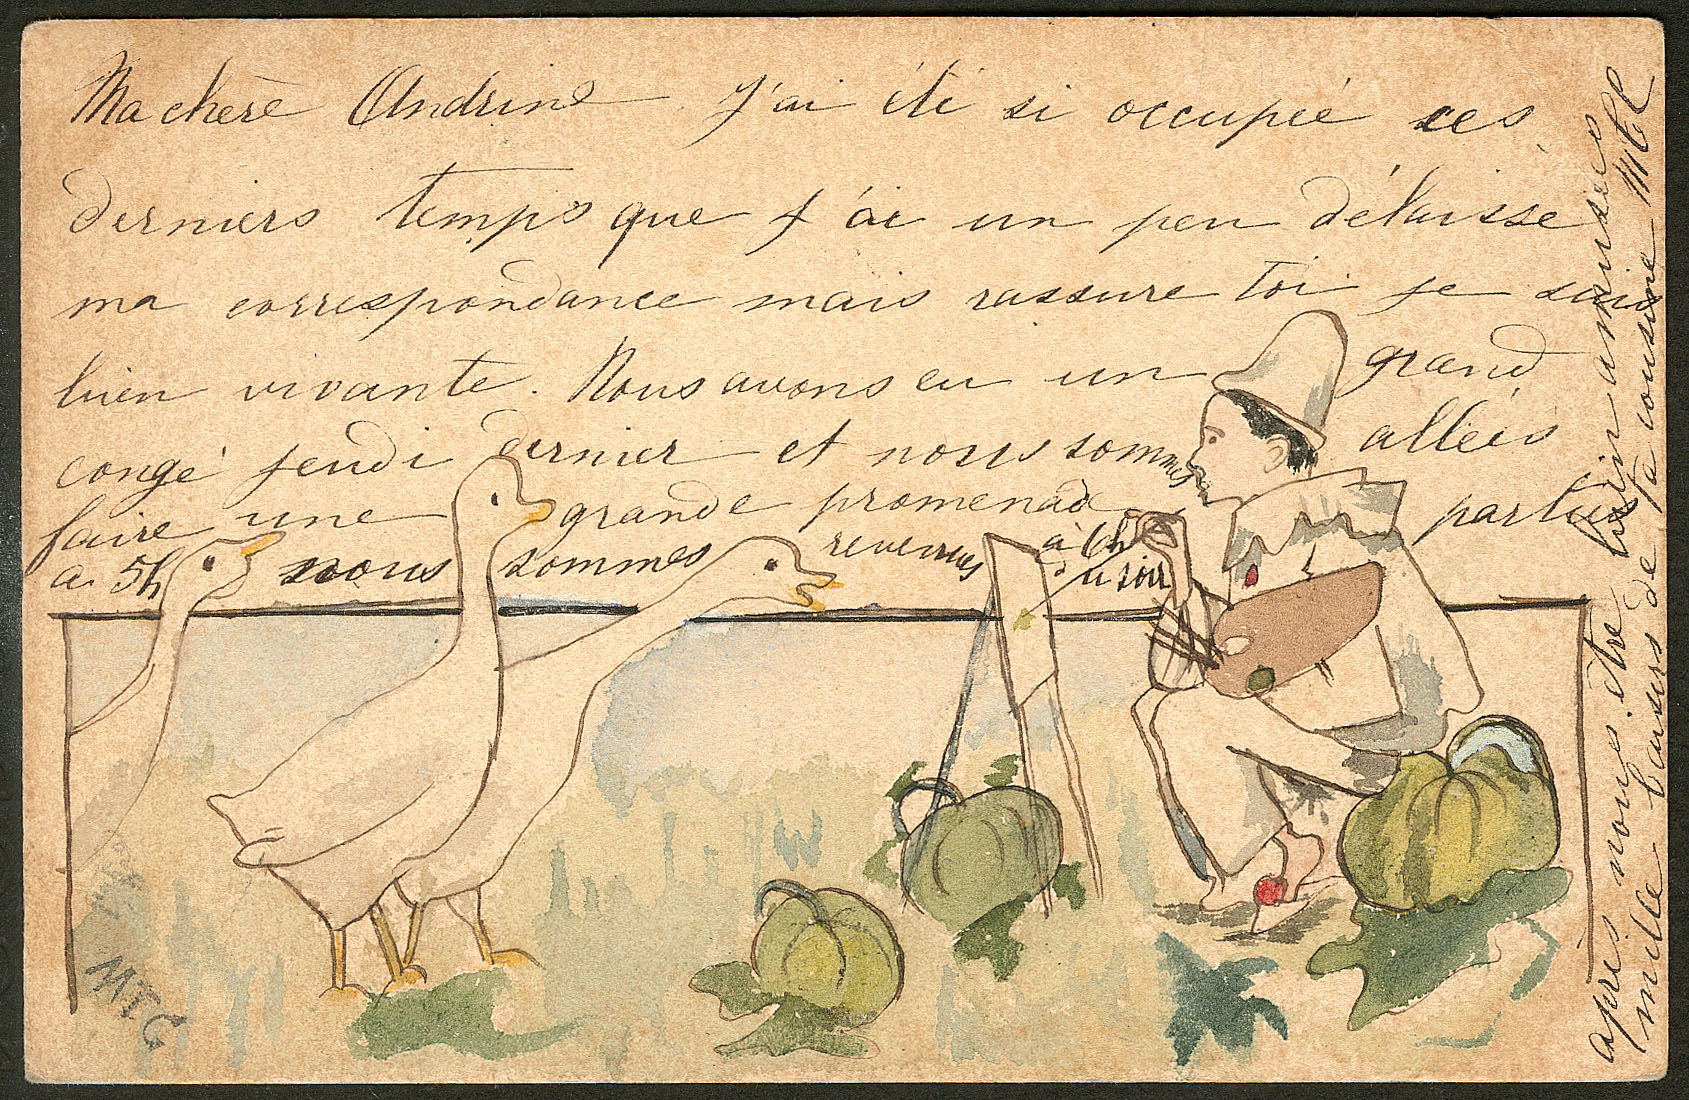 Ma chere Andrine J'ai été si occupée ces
derniers temps que j'ai un peu délaissé
ma correspondance mais rassure toi je suis
bien vivante. Nous avons eu un grand
congé jeudi dernier et nous sommes allées
faire une grande promenade partis
a 5h nous sommes revenues à 6h
du soir
après nous être bien amusées
mille baisers de ta cousine
MTG